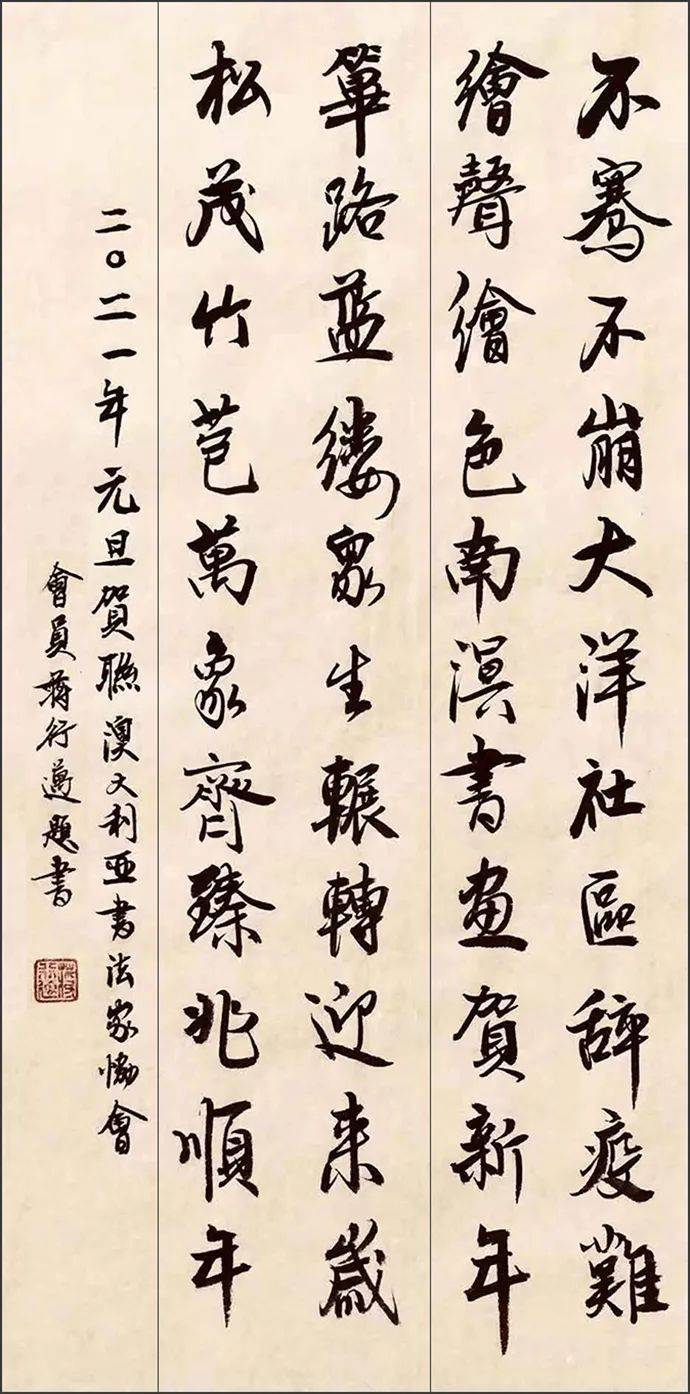 不騫不崩大洋社區辞疫難
繪聲繪色南溟書畫賀新年
篳路蓝縷眾生輾轉迎来歲
松茂竹苞萬象齊臻兆順年
二〇二一年元旦賀聯澳大利亚書法家協會
會員蒋行邁題書